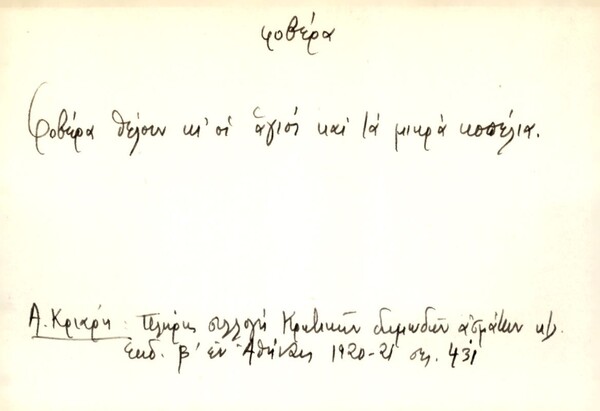 φοβέρα
Φοβέρα θέλουν κι' οἱ ἅγιοι καὶ τά μικρά κοπέλια.
Α. Κριάρη: Πλήρης συλλογή Κρητικῶν δημωδῶν ᾀσμάτων κτλ.
Ἔκδ. β' ἐν Ἀθήναις 1920-21 σελ. 431